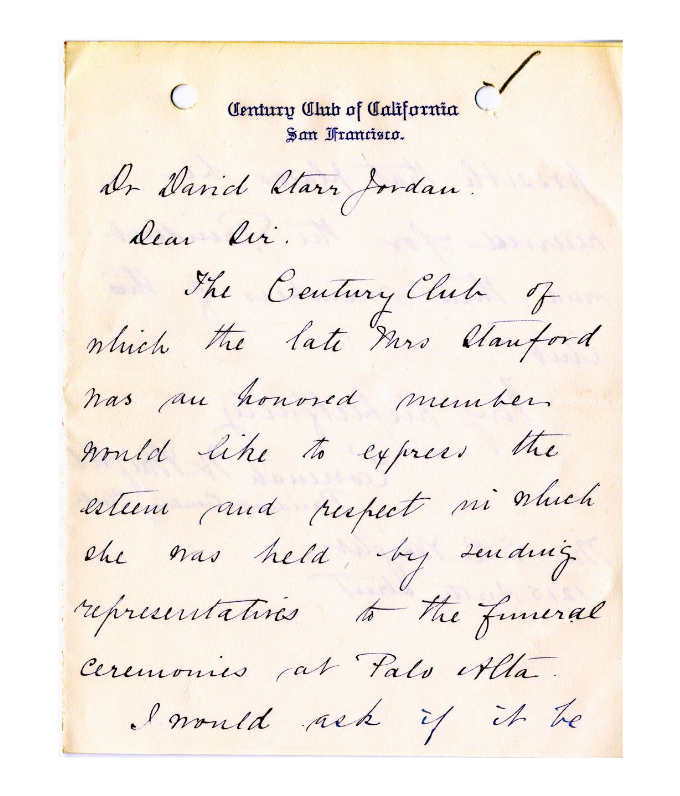 Century Club of California
San Francisco.
Dr David Starr Jordan.
Dear Sir.
The Century Club of
which the late Mrs Stanford
was an honored member
would like to express the
esteem and respect in which
she was held, by sending
representatives to the funeral
ceremonies at Palo Alta.
I would ask if it be